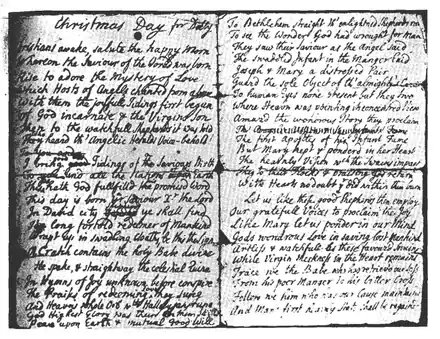 Christmas Day for Dolly
Christians awake, salute the happy Morn
Whereon the Saviour of the World was born
Rise to adore the Mystery of Love
which Hosts of Angels chanted from above
With them the joyfull Tidings first begun
Of God incarnate & the Virgins Son
Then to the watchfull Shepherds it was told
They heard th' Angelic Herald's Voice behold
I bring good Tidings of the Saviours Birth
To you and all the Nations upon Earth
This hath God fullfilled the promised Word
This day is born our Saviour X.t the Lord
In Davids city ye shall find
The long foretold redeemer of Mankind
Wrapt up in swadling Cloaths be this the Sign
A Cratch contains the holy Babe divine
He spake, & straightway the celestial Quire
In Hymns of Joy unknown before conspire
The Praises of redeeming Love they sung
And Heavns whole Orb with Hallelujas rung
God's Highest Glory was their Anthem still
Peace upon Earth & mutual good Will
To Bethlehem straight th' enlightned Shepherds ran
To see the Wonder God had wrought for Man
They saw their Saviour as the Angel said
The swaddled Infant in the Manger laid
Joseph & Mary a distressed Pair
Guard the sole Object of th' almighty's Care
To human Eyes none present but they two
Where Heavn was pointing its concentred View
Amazd the wondrous Story they proclaim
The first Apostles of his Infant Fame
But Mary kept & ponder'd in her Heart
The heavnly Vision wch the Swains impart
They to their Flocks & praising God return
With Hearts no doubt that did within them burn
Let us like these good Shepherds then employ
Our gratefull Voices to proclaim the Joy
Like Mary let us ponder in our Mind
Gods wondrous Love in saving lost Mankind
Artless & watchfull as these favourd Swains
While Virgin Meekness in the Heart remains
Trace we the Babe who has retrievd our loss
From his poor Manger to his bitter Cross
Follow we him who has our Cause maintaind
And Mans first heavnly State shall be regaind